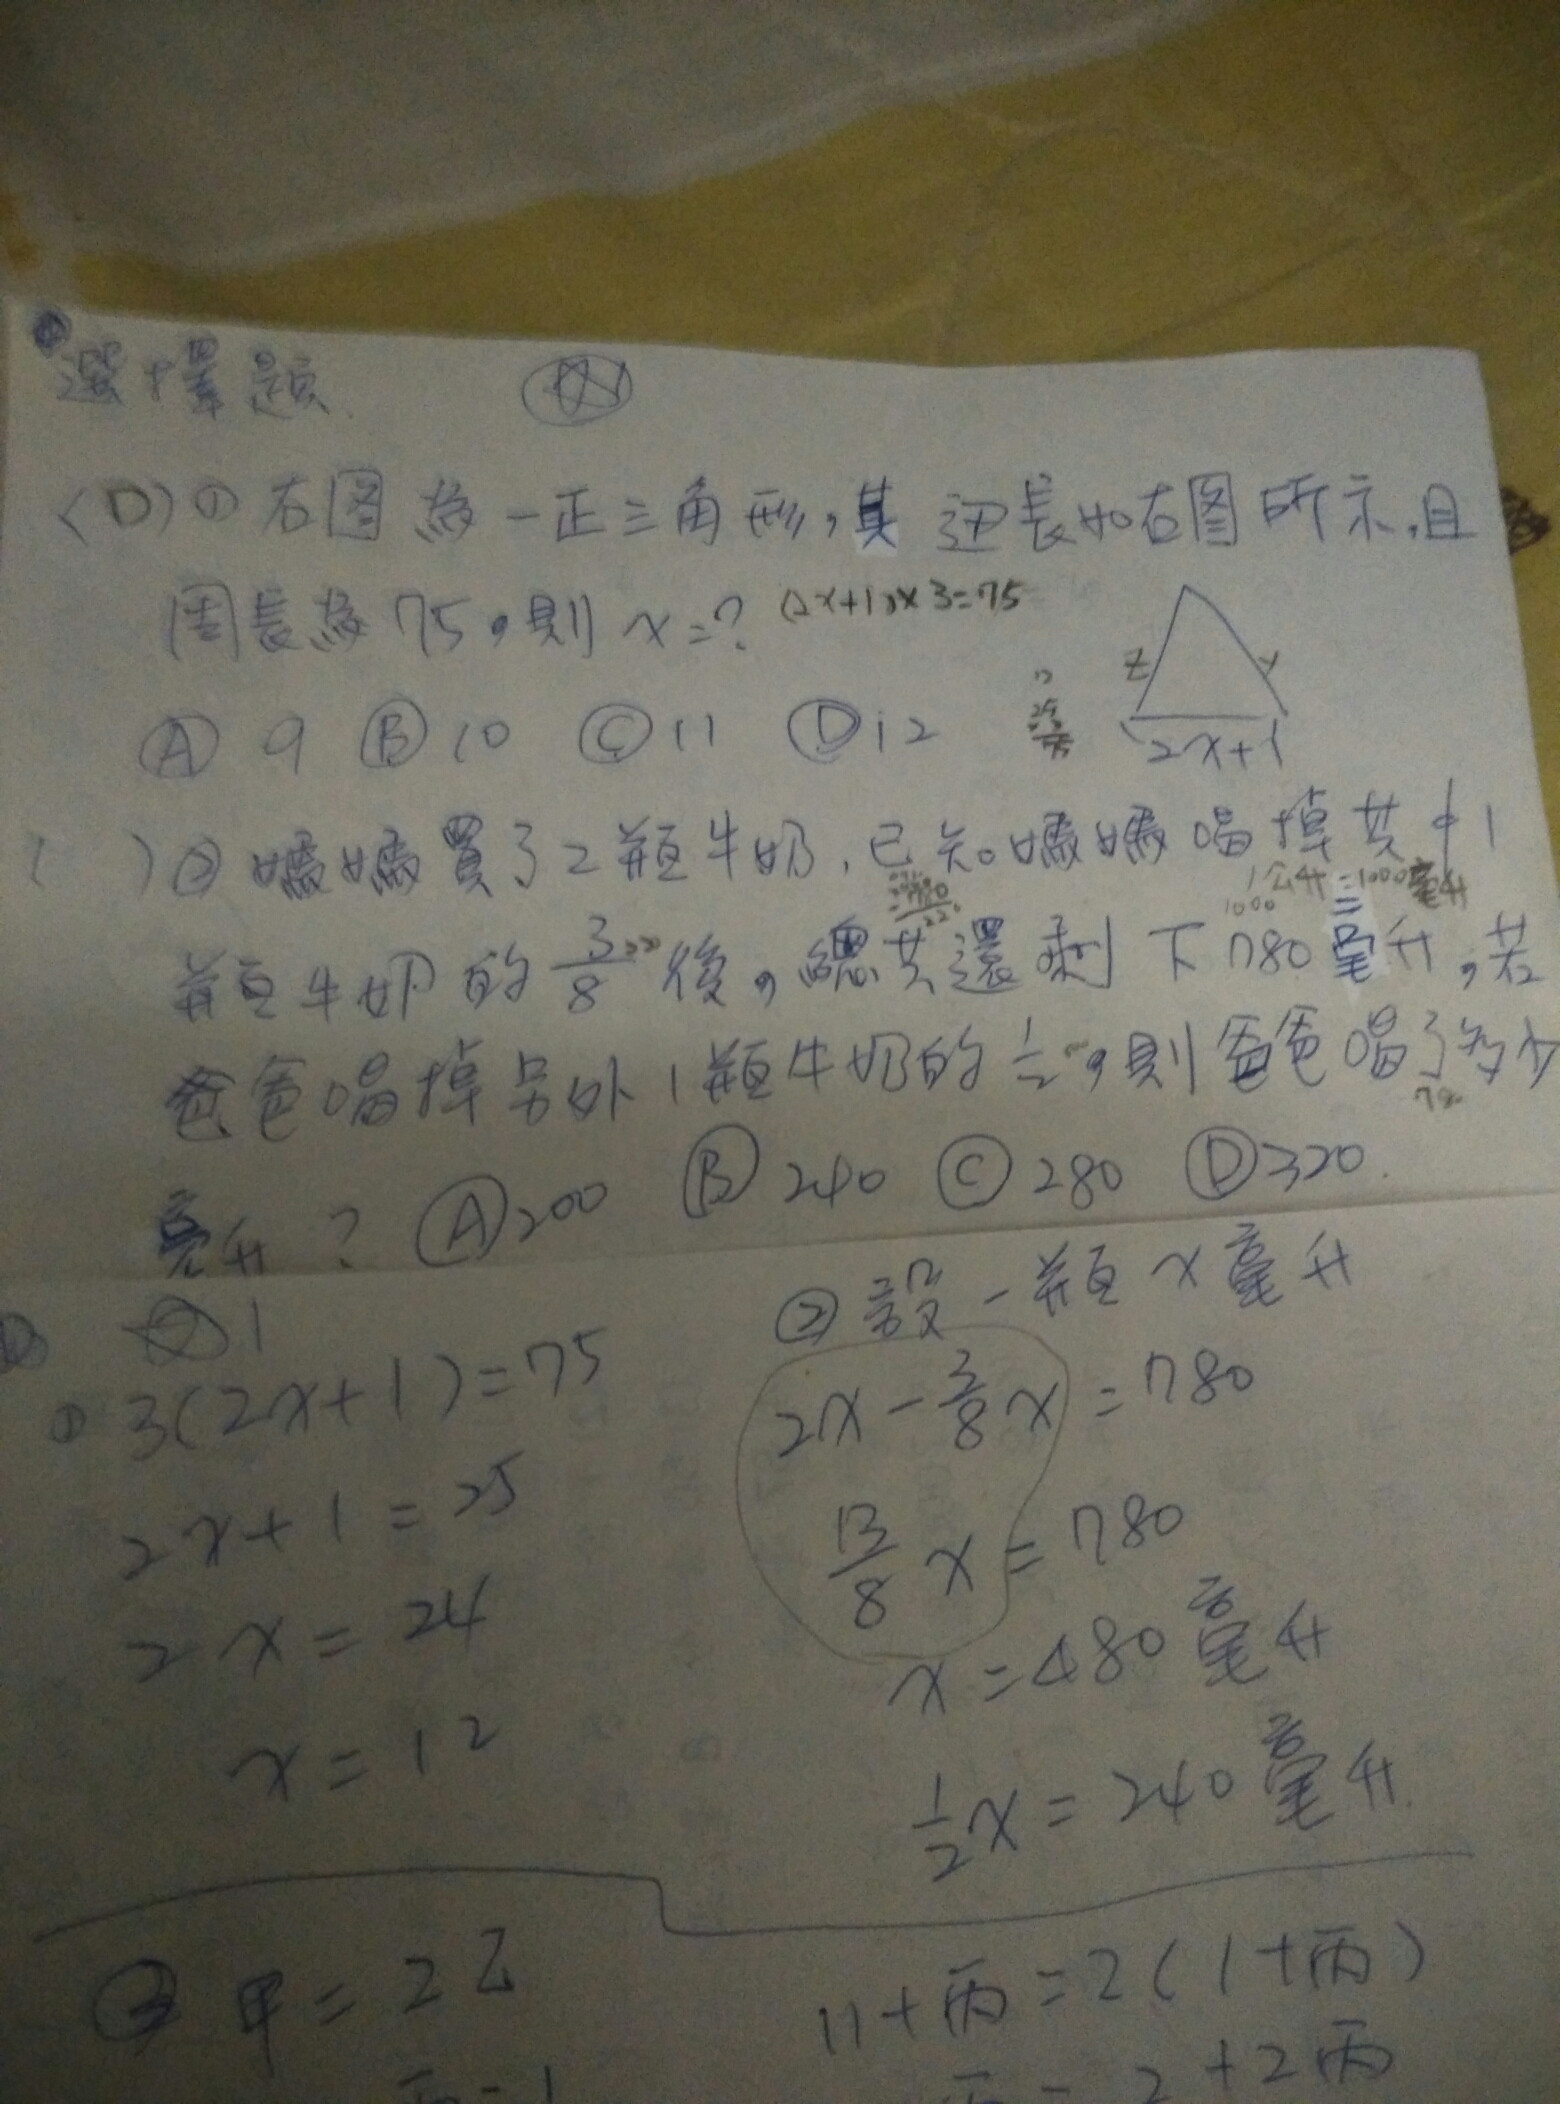 選擇題
(D)① 右图為一正三角形,其边長如右图所示,且
周長為75,則x=? (2x+1)×3=75
z y
Ⓐ 9 Ⓑ 10 Ⓒ 11 Ⓓ 12
2x+1
( )② 媽媽買了2瓶牛奶,已知媽媽喝掉其中1
1公升=1000毫升
1000
瓶牛奶的3/8後,總共還剩下780毫升,若
爸爸喝掉另外1瓶牛奶的1/2,則爸爸喝了多少
780
毫升? Ⓐ200 Ⓑ 240 Ⓒ 280 Ⓓ320.
① 3(2x+1)=75
2x+1=25
2x=24
x=12
②設一瓶x毫升
2x-3/8x=780
13/8x=780
x=480毫升
1/2x=240毫升.
③ 甲=2乙
11+丙=2(1+丙)
=2+2丙